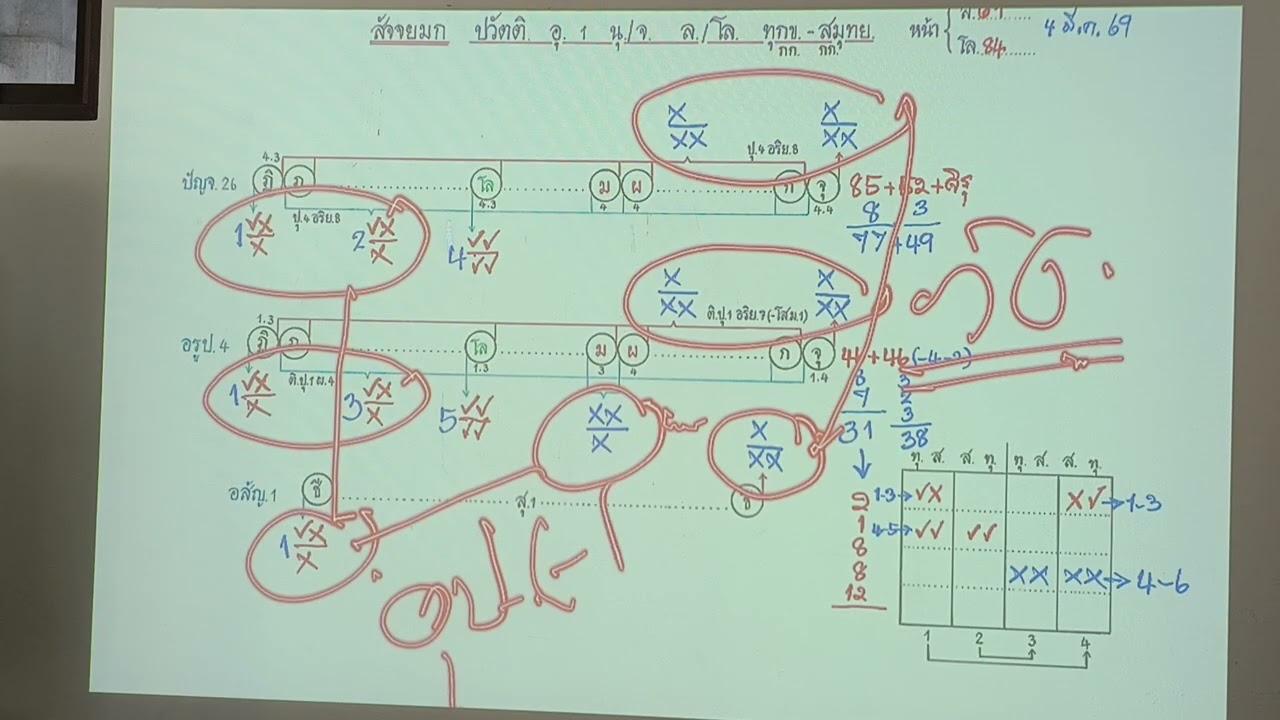 สัจจยมก ปวัตติ. อุ. 1 นุ./จ. ล./โล. ทุกข.-สมุทย. หน้า
กก. กก.
โล. 84
4 มี.ค. 69
X/XX X/XX
4.3 ปุ.4 อริย.8
ปัญจ. 26 ภิ ภ โล ม ผ ภ จุ 85+52+
ปุ.4 อริย.8 4.3 4 4 4.4
8/77 + 3/49
1 √X/X 2 √X/X 4 √√/√√
X/XX X/XX
1.3 ติ.ปุ.1 อริย.7(-โสม.1)
อรูป. 4 ภิ ภ โล ม ผ ภ จุ 41+46(-4-2)
ติ.ปุ.1 ผ.4 1.3 3 4 1.4
1 √X/X 3 √X/X 5 √√/√√ XX/X X/XX
8 3
7 2
31 3
38
ทุ. ส. ส. ทุ. ทุ. ส. ส. ทุ.
อสัญ.1 ชี สุ.1 ชี
1 √X/X
2 1-3→ √X X√ →1-3
1 4-5→ √√ √√
8
8 XX XX →4-6
12
1 2 3 4